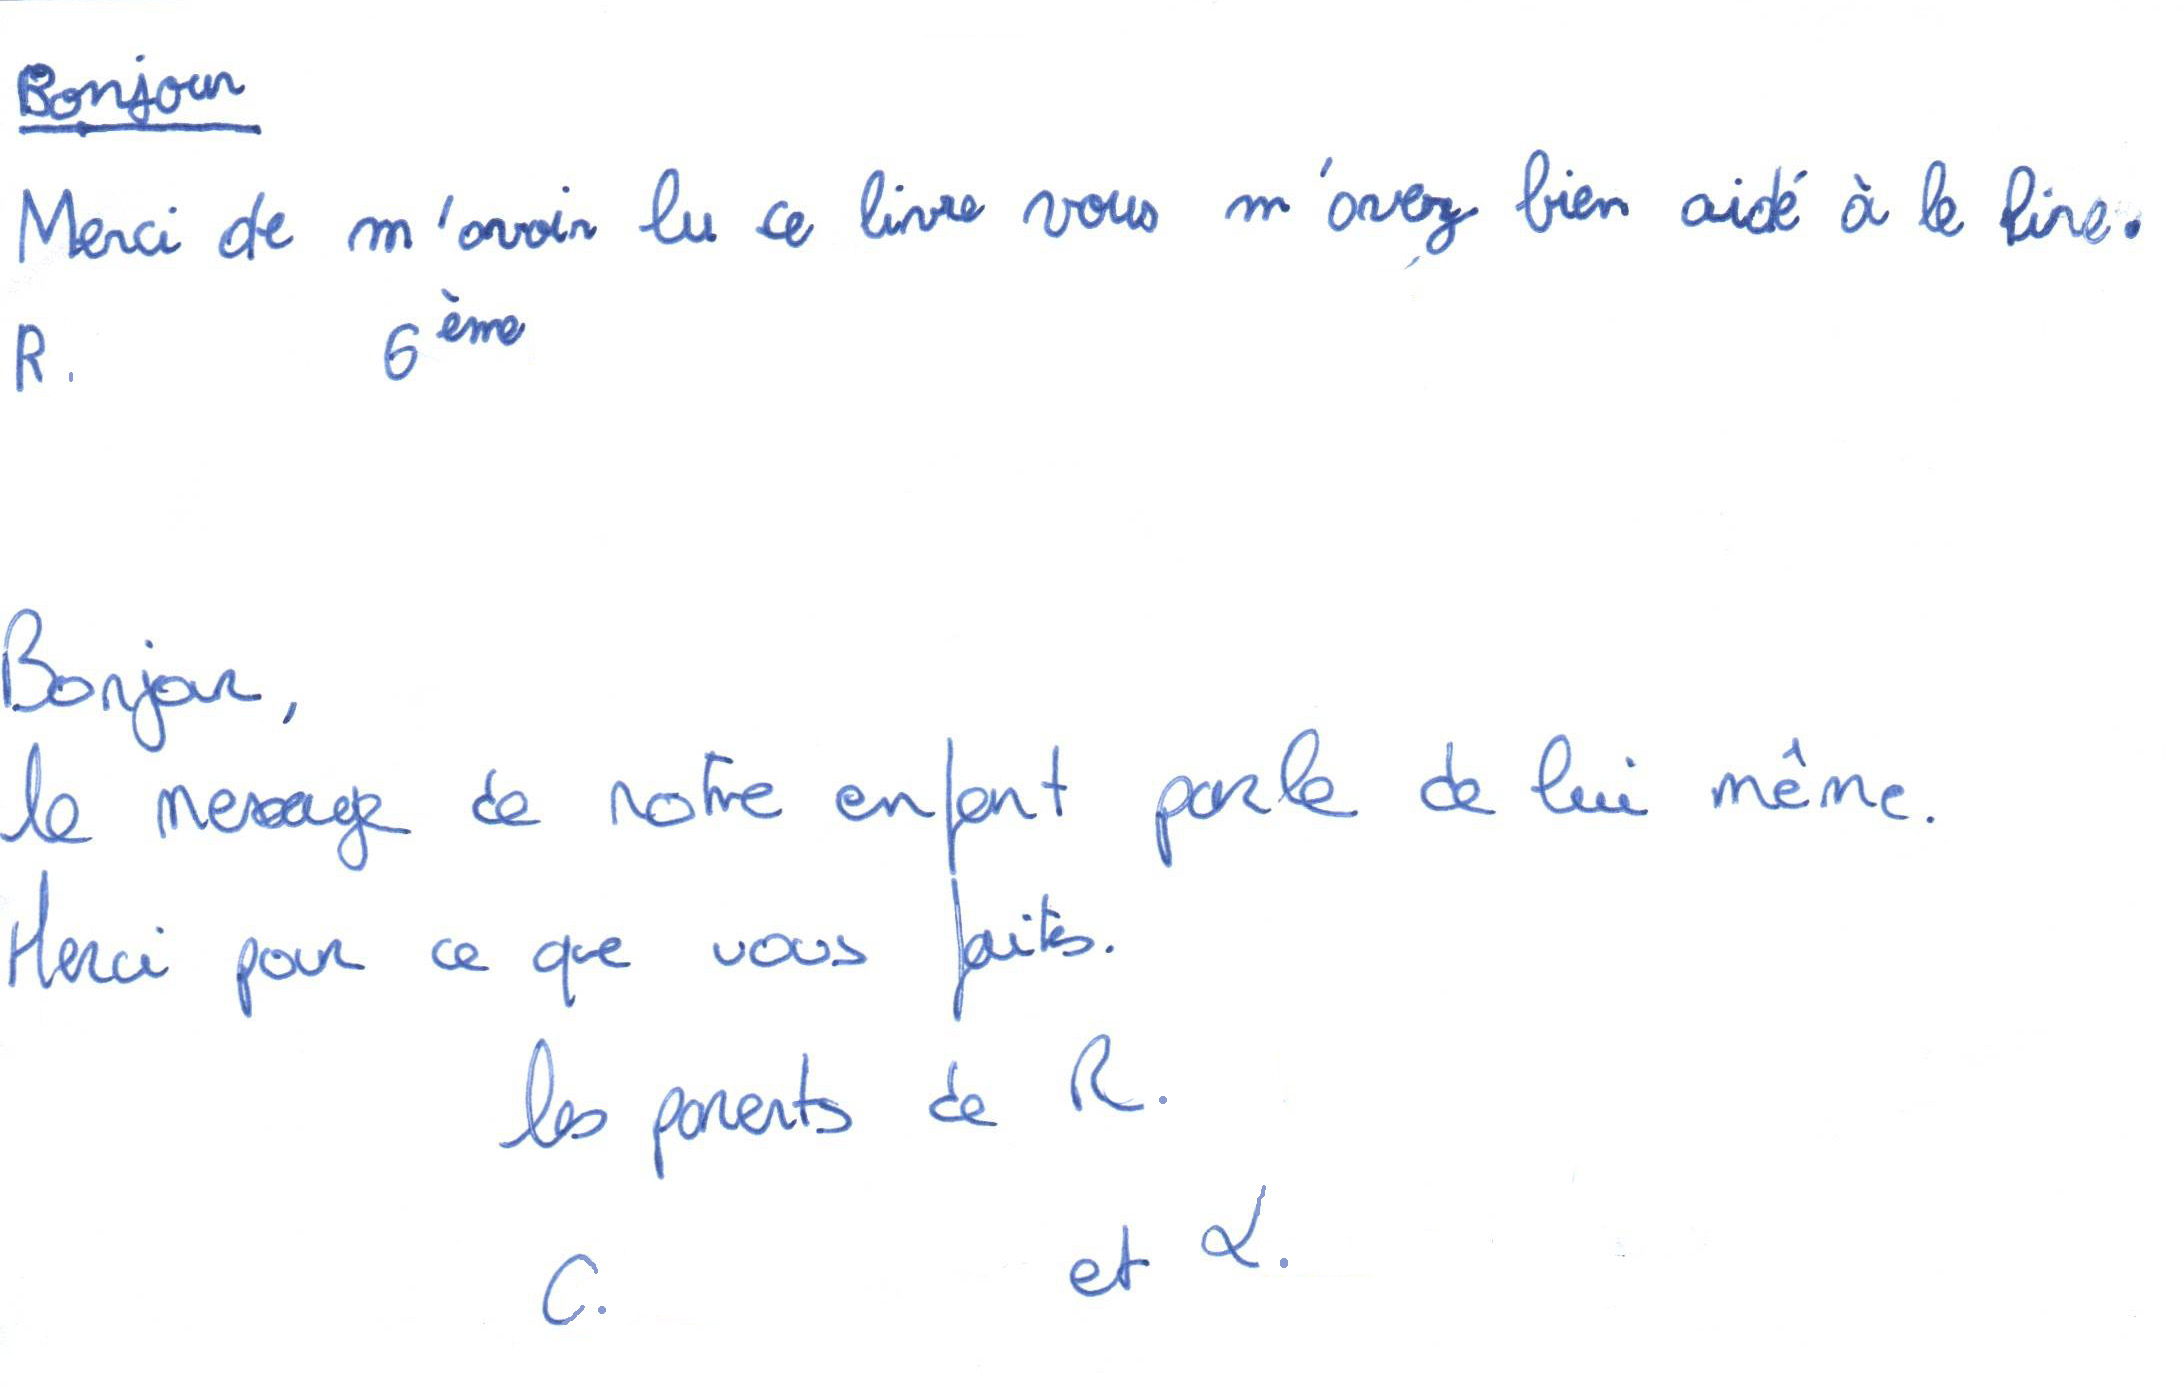 Bonjour
Merci de m'avoir lu ce livre vous m'avez bien aidé à le lire.
R. 6ème
Bonjour,
le message de notre enfant parle de lui même.
Merci pour ce que vous faites.
les parents de R.
C. et L.